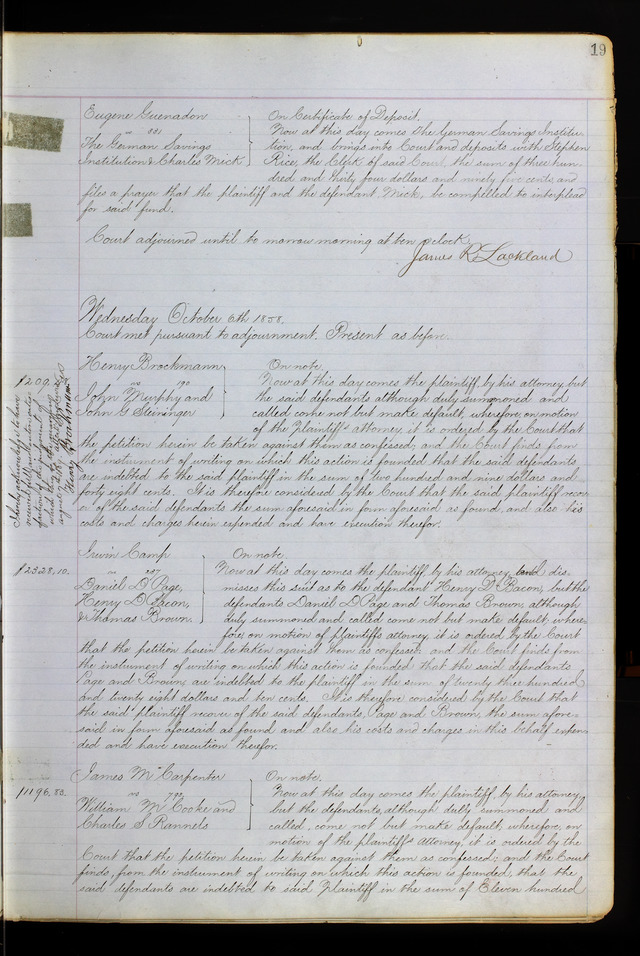 19
Eugene Guenadon
vs 881
The German Savings
Institution & Charles Mick
On Certificate of Deposit.
Now at this day comes The German Savings Institu-
tion, and brings into Court and deposits with Stephen
Rice, the Clerk of said Court, the sum of three hun-
dred and thirty four dollars and ninety five cents, and
files a prayer that the plaintiff and the defendant Mick, be compelled to interplead
for said fund.
Court adjourned until to morrow morning at ten oclock
James R Lackland
Wednesday October 6th 1858.
Court met pursuant to adjournment. Present as before.
Henry Brockmann
vs 190
John Murphy and
John G Steininger
$209.48
On note
Now at this day comes the plaintiff by his attorney, but
the said defendants although duly summoned and
called come not but make default, wherefore, on motion
of the Plaintiffs attorney it is ordered by the Court that
the petition herein be taken against them as confessed, and the Court finds from
the instrument of writing on which this action is founded that the said defendants
are indebted to the said plaintiff in the sum of two hundred and nine dollars and
forty eight cents. It is therefore considered by the Court that the said plaintiff recov-
er of the said defendants the sum aforesaid in form aforesaid as found and also his
costs and charges herein expended and have execution therefor.
Henry Brockmann
Irwin Camp
vs 237
Daniel D Page,
Henry D Bacon,
& Thomas Brown
$2328.10.
On note
Now at this day comes the plaintiff, by his attorney and dis-
misses this suit as to the defendant Henry D Bacon, but the
defendants Daniel D Page and Thomas Brown, although
duly summoned and called come not but make default, where-
fore; on motion of plaintiffs attorney, it is ordered by the Court
that the petition herein be taken against them as confessed: and the Court finds from
the instrument of writing on which this action is founded that the said defendants
Page and Brown, are indebted to the plaintiff in the sum of twenty three hundred
and twenty eight dollars and ten cents. It is therefore considered by the Court that
the said plaintiff recover of the said defendants, Page and Brown, the sum afore-
said in form aforesaid as found and also his costs and charges in this behalf expen-
ded and have execution therefor.
James M Carpenter
vs 790
William M Cooke and
Charles S Rannels
$1196.83.
On note.
Now at this day comes the plaintiff by his attorney,
but the defendants, although dully summoned and
called, come not but make default, wherefore, on
motion of the plaintiffs Attorney, it is ordered by the
Court that the petition herein be taken against them as confessed; and the Court
finds, from the instrument of writing on which this action is founded, that the
said defendants are indebted to said Plaintiff in the sum of Eleven hundred